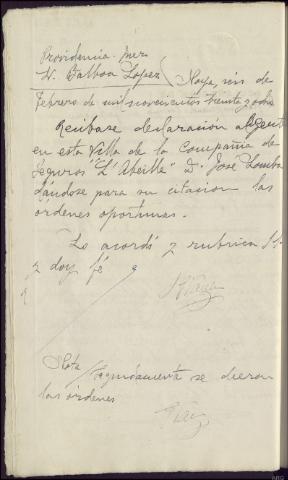 Providencia Juez
Sr. Balboa Lopez / Noya, seis de
Febrero de mil novecientos treinta y ocho
Recíbase declaración al Agente
en esta Villa de la Compañía de
Seguros "L'Abeille" D. José Lomba
dándose para su citacion las
órdenes oportunas.
Lo acordó y rubrica S.Sª
y doy fé
Nota / Seguidamente se dieron
las órdenes